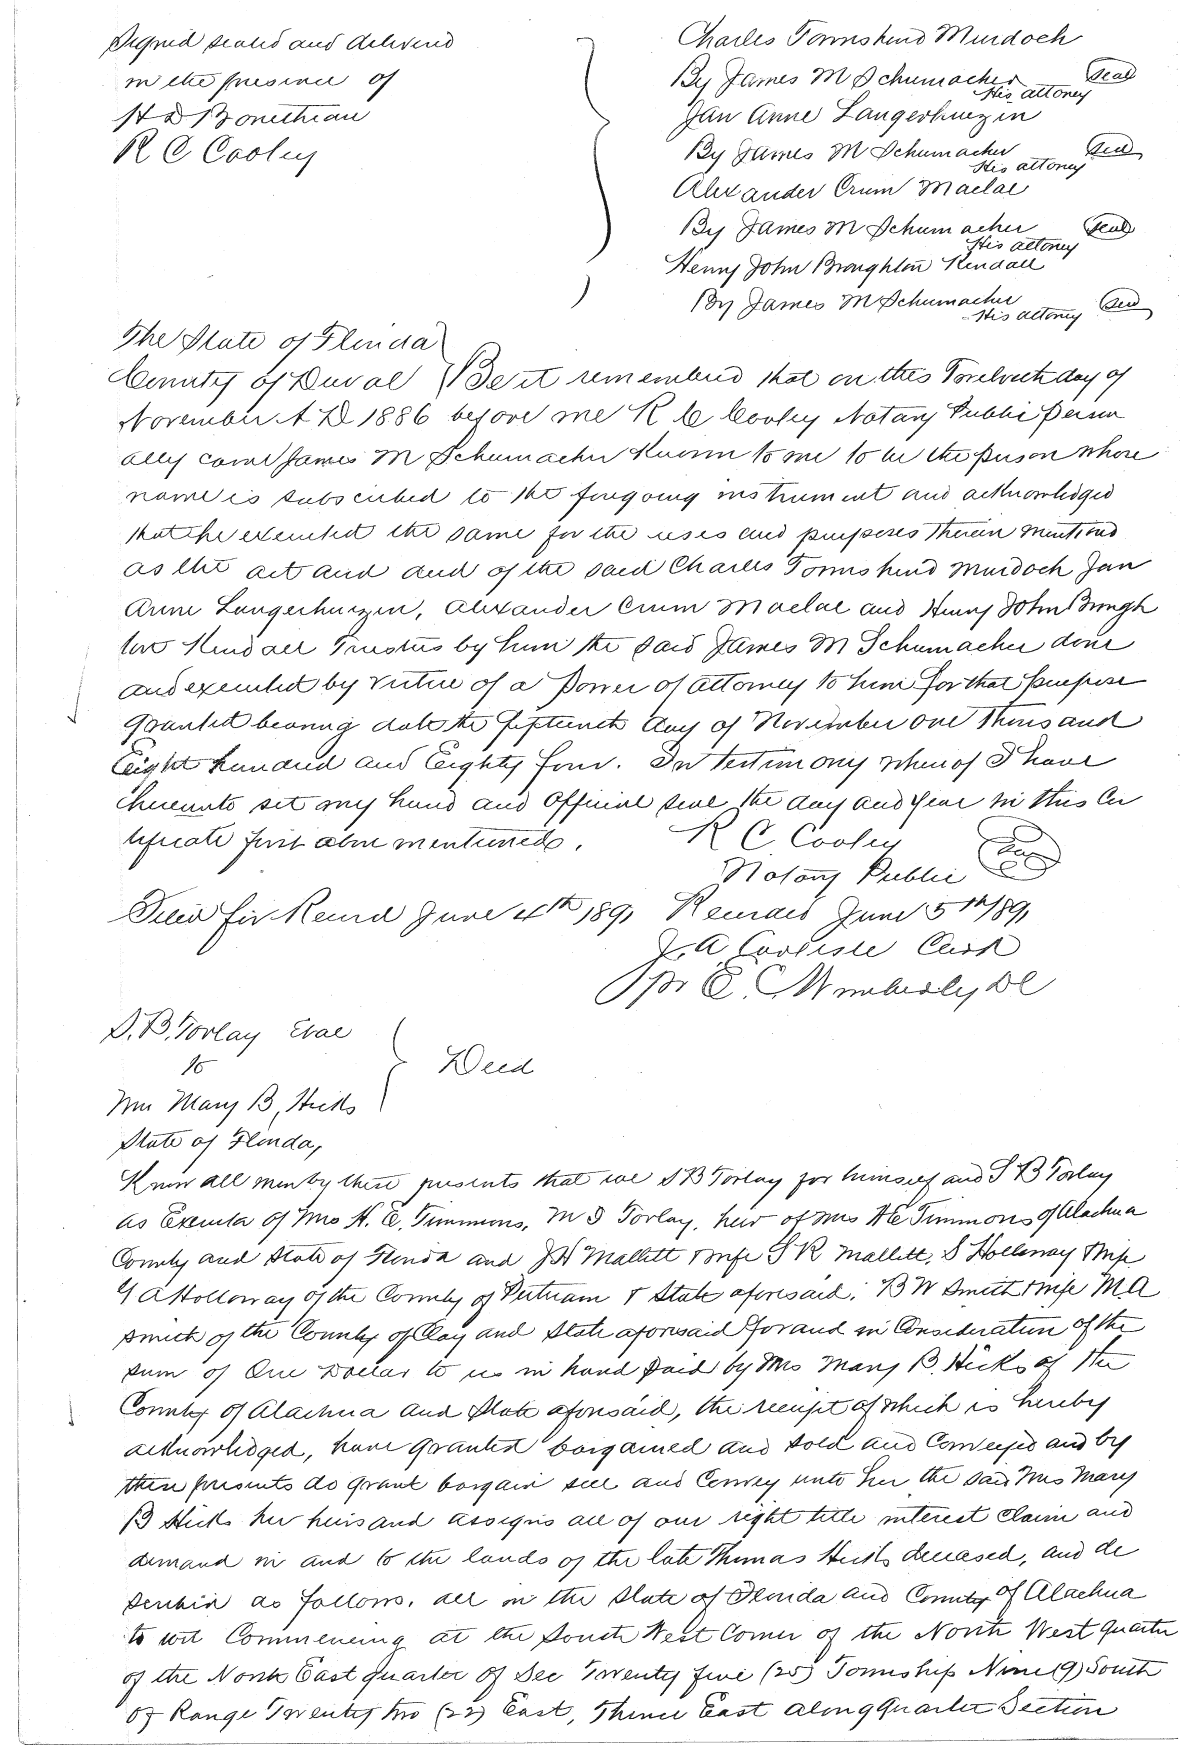 Signed sealed and delivered
in the presence of
H D Bonethean
R C Cooley
Charles Townshend Murdoch
By James M Schumacher seal
His attorney
Jan Anne Langerhuizin
By James M Schumacher seal
His attorney
Alexander Crum Maclae
By James M Schumacher seal
His attorney
Henry John Broughton Kendall
By James M Schumacher seal
His attorney
The State of Florida
County of Duval Be it remembered that on this Twelveth day of
November A D 1886 before me R C Cooley Notary Public person
ally came James M Schumacher Known to me to be the person whose
name is subscribed to the foregoing instrument and acknowledged
that he executed the same for the uses and purposes therein mentioned
as the act and deed of the said Charles Townshend Murdoch Jan
Anne Langerhuizin, Alexander Crum Maclae and Henry John Brough
ton Kendall Trustees by him the said James M Schumacher done
and executed by virtue of a Power of attorney to him for that purpose
granted bearing date the fifteenth day of November one Thousand
Eight hundred and Eighty four. In testimony whereof I have
hereunto set my hand and official seal the day and year in this Cer
tificate first above mentioned.
R C. Cooley
Notary Public seal
Filed for Record June 4th 1891 Recorded June 5th 1891
J. A Carlisle Clerk
pr E. C Wimberly D C
S. B. Torlay Etal
to
Mrs Mary B, Hicks
Deed
State of Florida,
Know all men by these presents that we S B Torlay for himself and S B Torlay
as Executor of Mrs H. E. Timmons, M I Torlay, heir of Mrs H E Timmons of Alachua
County and State of Florida and J H Mallett & wife S R Mallett, S Holloway & wife
G A Holloway of the County of Putnam & State aforesaid. B W Smith & wife M A
Smith of the County of Clay and State aforesaid for and in Consideration of the
sum of One Dollar to us in hand paid by Mrs Mary B. Hicks of the
County of Alachua and State aforesaid, the receipt of which is hereby
acknowledged, have granted bargained and sold and Conveyed and by
these presents do grant bargain sell and Convey unto her the said Mrs Mary
B Hicks her heirs and assigns all of our right title interest claim and
demand in and to the lands of the late Thomas Hicks deceased, and de
scribed as follows, all in the State of Florida and County of Alachua
to wit Commencing at the South West Corner of the North West quarter
of the North East quarter of Sec Twenty five (25) Township Nine (9) South
of Range Twenty two (22) East, Thence East along quarter Section